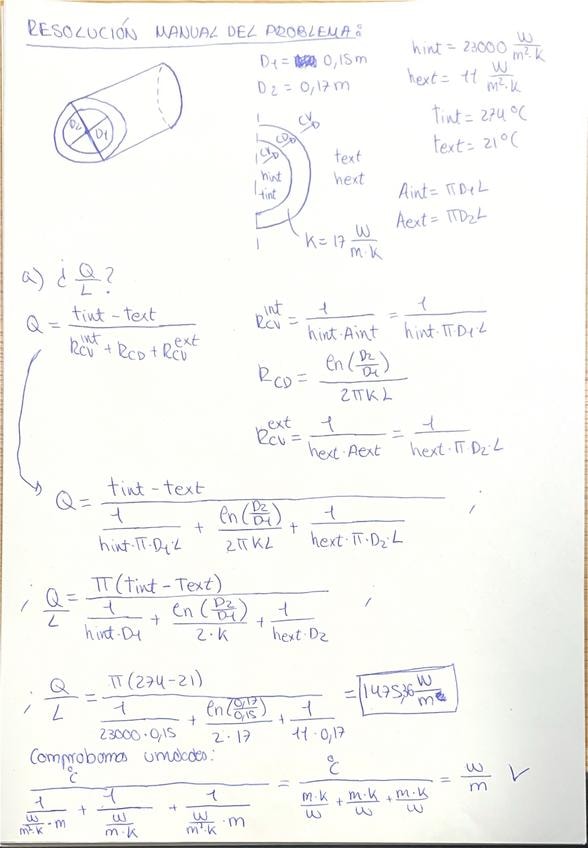 RESOLUCIÓN MANUAL DEL PROBLEMA:
D1 = 0,15m
D2 = 0,17m
hint = 23000 W/m²·K
hext = 11 W/m²·K
tint = 274°C
text = 21°C
D2 D1
CV
CD
CV
hint
tint
text
hext
K = 17 W/m·K
Aint = πD1L
Aext = πD2L
a) ¿ Q/L ?
Q = (tint - text) / (Rcv^int + RCD + Rcv^ext)
Rcv^int = 1/(hint·Aint) = 1/(hint·π·D1·L)
RCD = ln(D2/D1) / (2πKL)
Rcv^ext = 1/(hext·Aext) = 1/(hext·πD2·L)
Q = (tint - text) / (1/(hint·π·D1·L) + ln(D2/D1)/(2πKL) + 1/(hext·π·D2·L)) ;
; Q/L = π(Tint - Text) / (1/(hint·D1) + ln(D2/D1)/(2·K) + 1/(hext·D2)) ;
; Q/L = π(274-21) / (1/(23000·0,15) + ln(0,17/0,15)/(2·17) + 1/(11·0,17)) = 1475,36 W/m
Comprobamos unidades:
°C / (1/(W/m²·K · m) + 1/(W/m·K) + 1/(W/m²·K · m)) = °C / (m·K/W + m·K/W + m·K/W) = W/m ✓